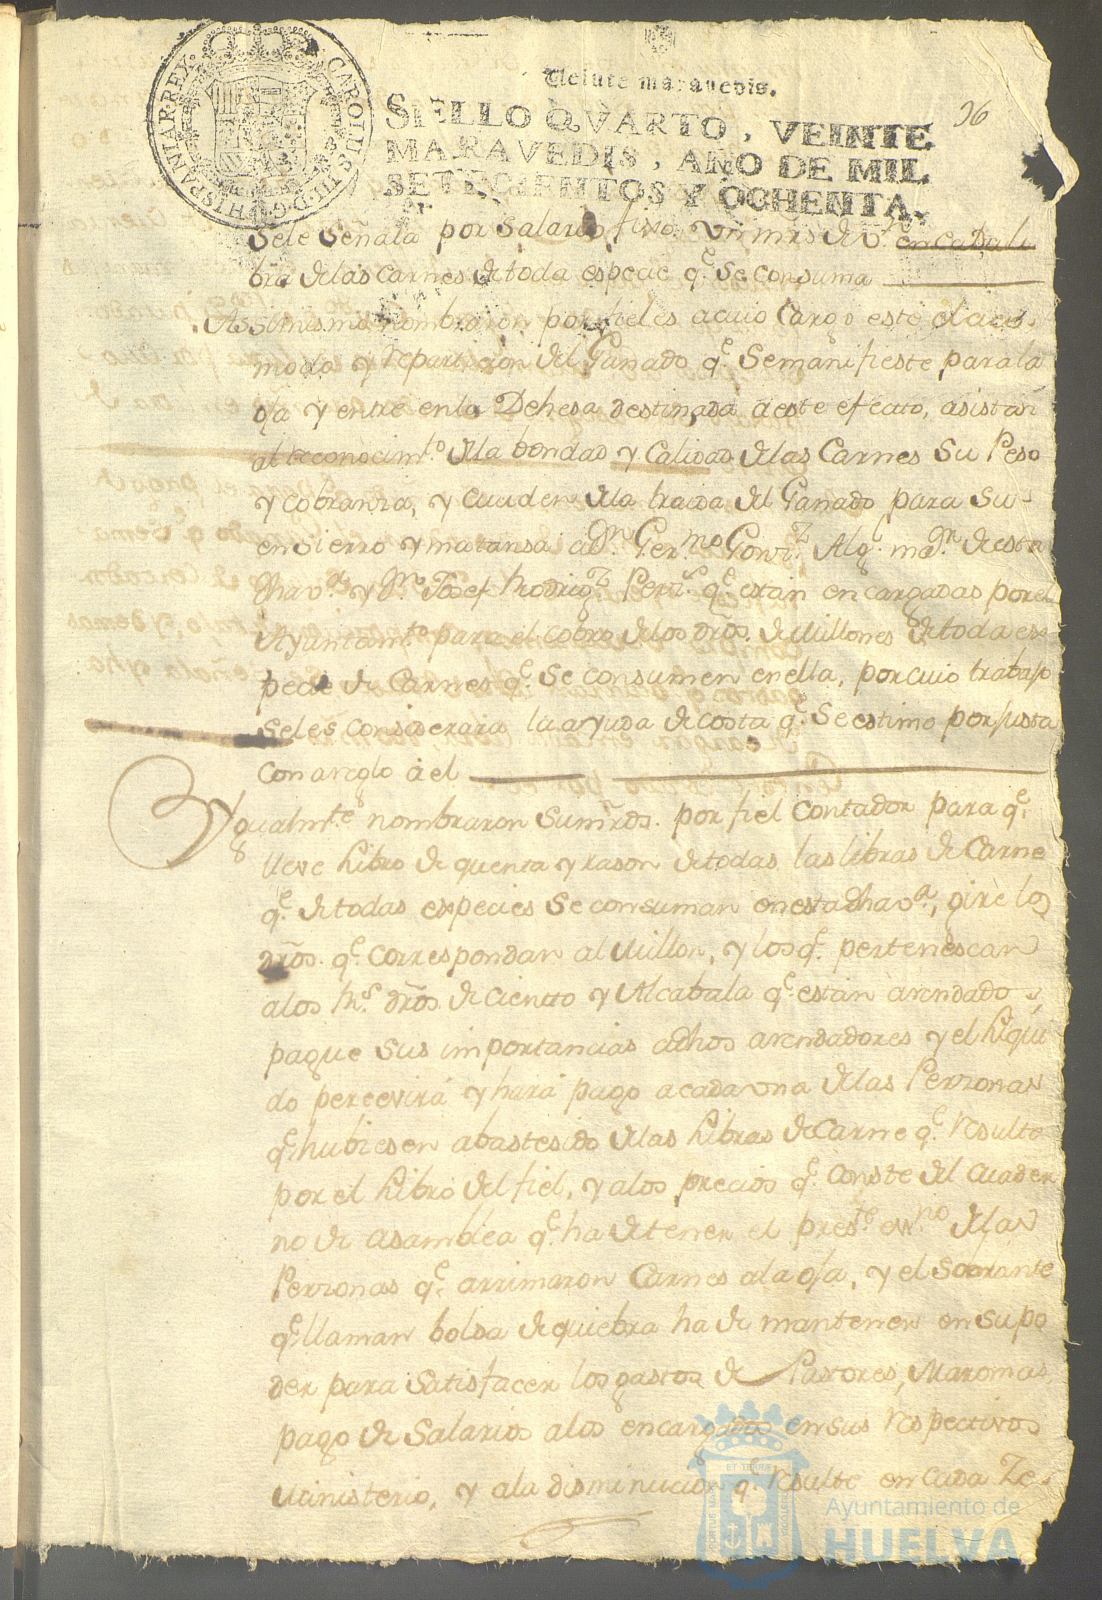 CAROLUS III. D. G. HISPANIAR. REX.
Veinte maravedis.
96
SELLO QVARTO, VEINTE
MARAVEDIS, AÑO DE MIL
SETECIENTOS Y OCHENTA.
sele señala por salario fixo un mrs de vn. en cada li
bra delas carnes de toda especie q.e se consuma
Assimismo nombraron por fieles a cuio cargo esté el aco-
modo y repartision del Ganado q.e semanifieste parala
oja y entre enla Dehesa destinada aeste efecto, asistan
al reconocim.to dela bondad y Calidad delas Carnes su Peso
y cobransa, y cuiden dela traida del Ganado para su
ensierro y matansa a D.n Ger.mo Gonz.z Alg.l m.or de esta
dha v.a y D.n Josef Rodrig.z q.e están encargadas porel
Ayuntam.to para el cobro delos dros. de Millones de toda es-
pecie de Carnes q.e se consumen enella, porcuio trabajo
seles considerara la ayuda de costa q.e se estimo por justa
con areglo a el
Ygualm.te nombraron sumrds. por fiel contador para q.e
lleve Libro de quenta y rason detodas las libras de Carne
q.e detodas especies se consuman en esta dha v.a, gire los
dros. q.e correspondan al Millon, y los q.e pertenescan
alos R.s dros. de ciento y Alcabala q.e están arendados,
pague sus importancias adhos arendadores y el liqui
do percevirá y hará pago acada una delas Perzonas
q.e hubiesen abastesido delas Libras de Carne q.e resulte
por el Libro del fiel, y alos precios q.e conste del cuader
no de asamblea q.e ha detener el pres.te es.no delas
Perzonas q.e arrimaron Carnes ala oja, y el sobrante
q.e llaman bolsa de quiebra ha de mantener en su po
der para satisfacer los gastos de Pastores, Maromas,
pago de Salarios alos encargados en sus respectivos
Ministerio, y ala disminucion q.e resulte en cada Ze-
Ayuntamiento de
HUELVA